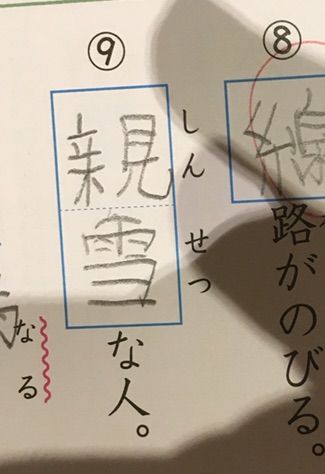 ⑧
線路がのびる。
⑨
しんせつ
親雪な人。
なる